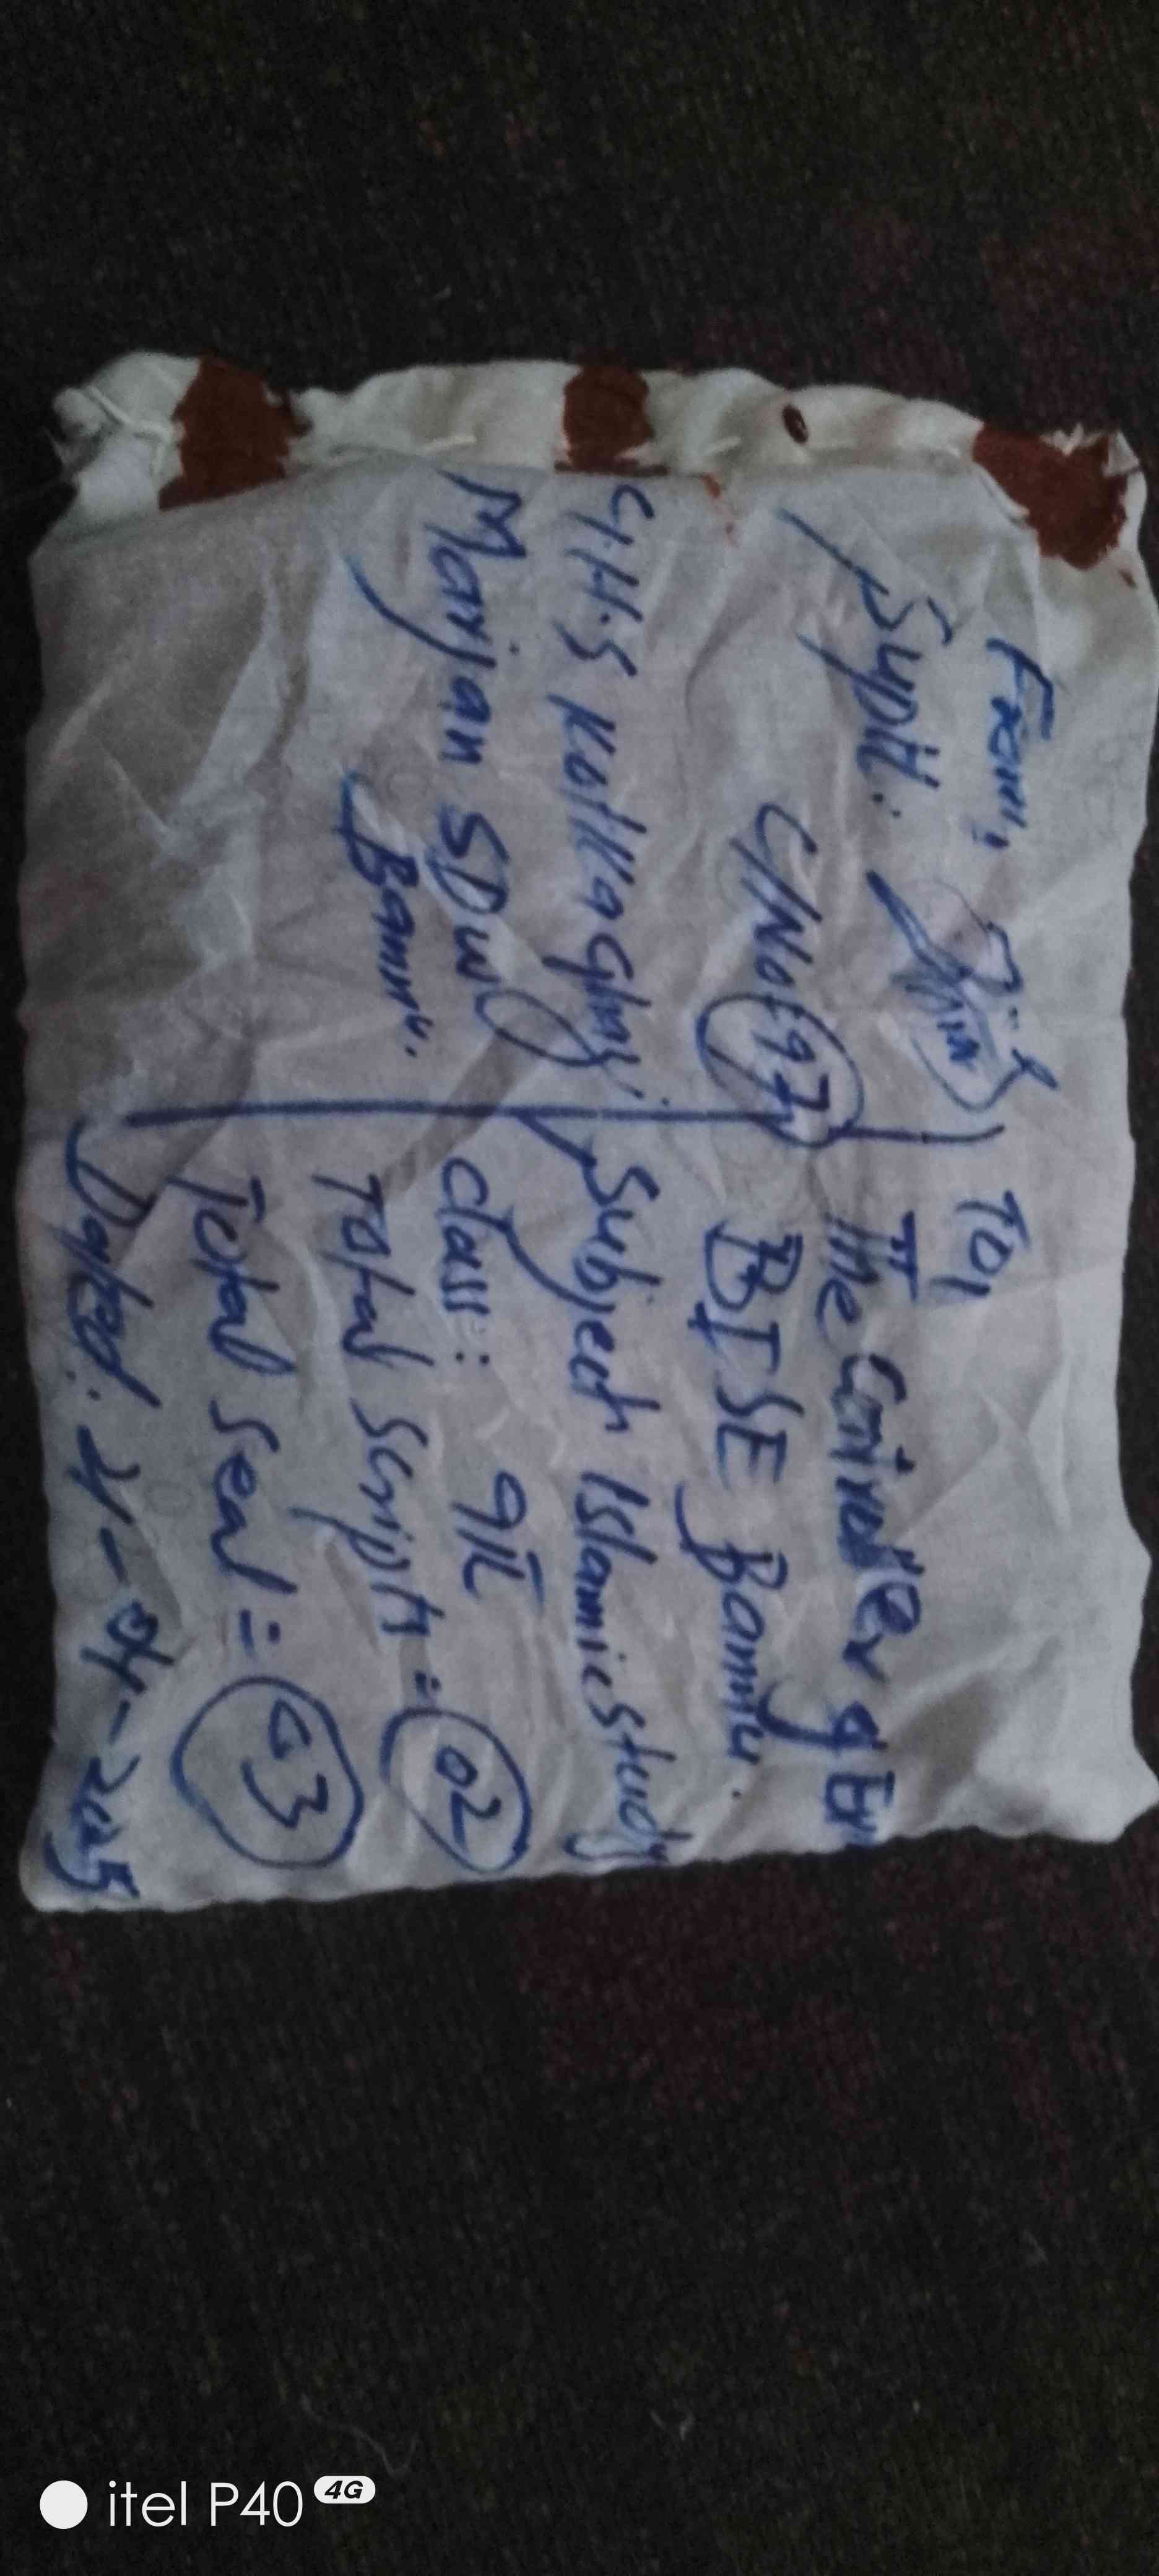 From,
Supdt:
CNo: 197
G.H.S Kotka Ghni
Marjan SDW
Bannu".
To,
The Controller of Ex
BISE Bannu.
Subject Islamic Study
Class: 9th
Total Scripts = 02
Total Seal = 03
Dated: 4-04-2025
itel P40 4G